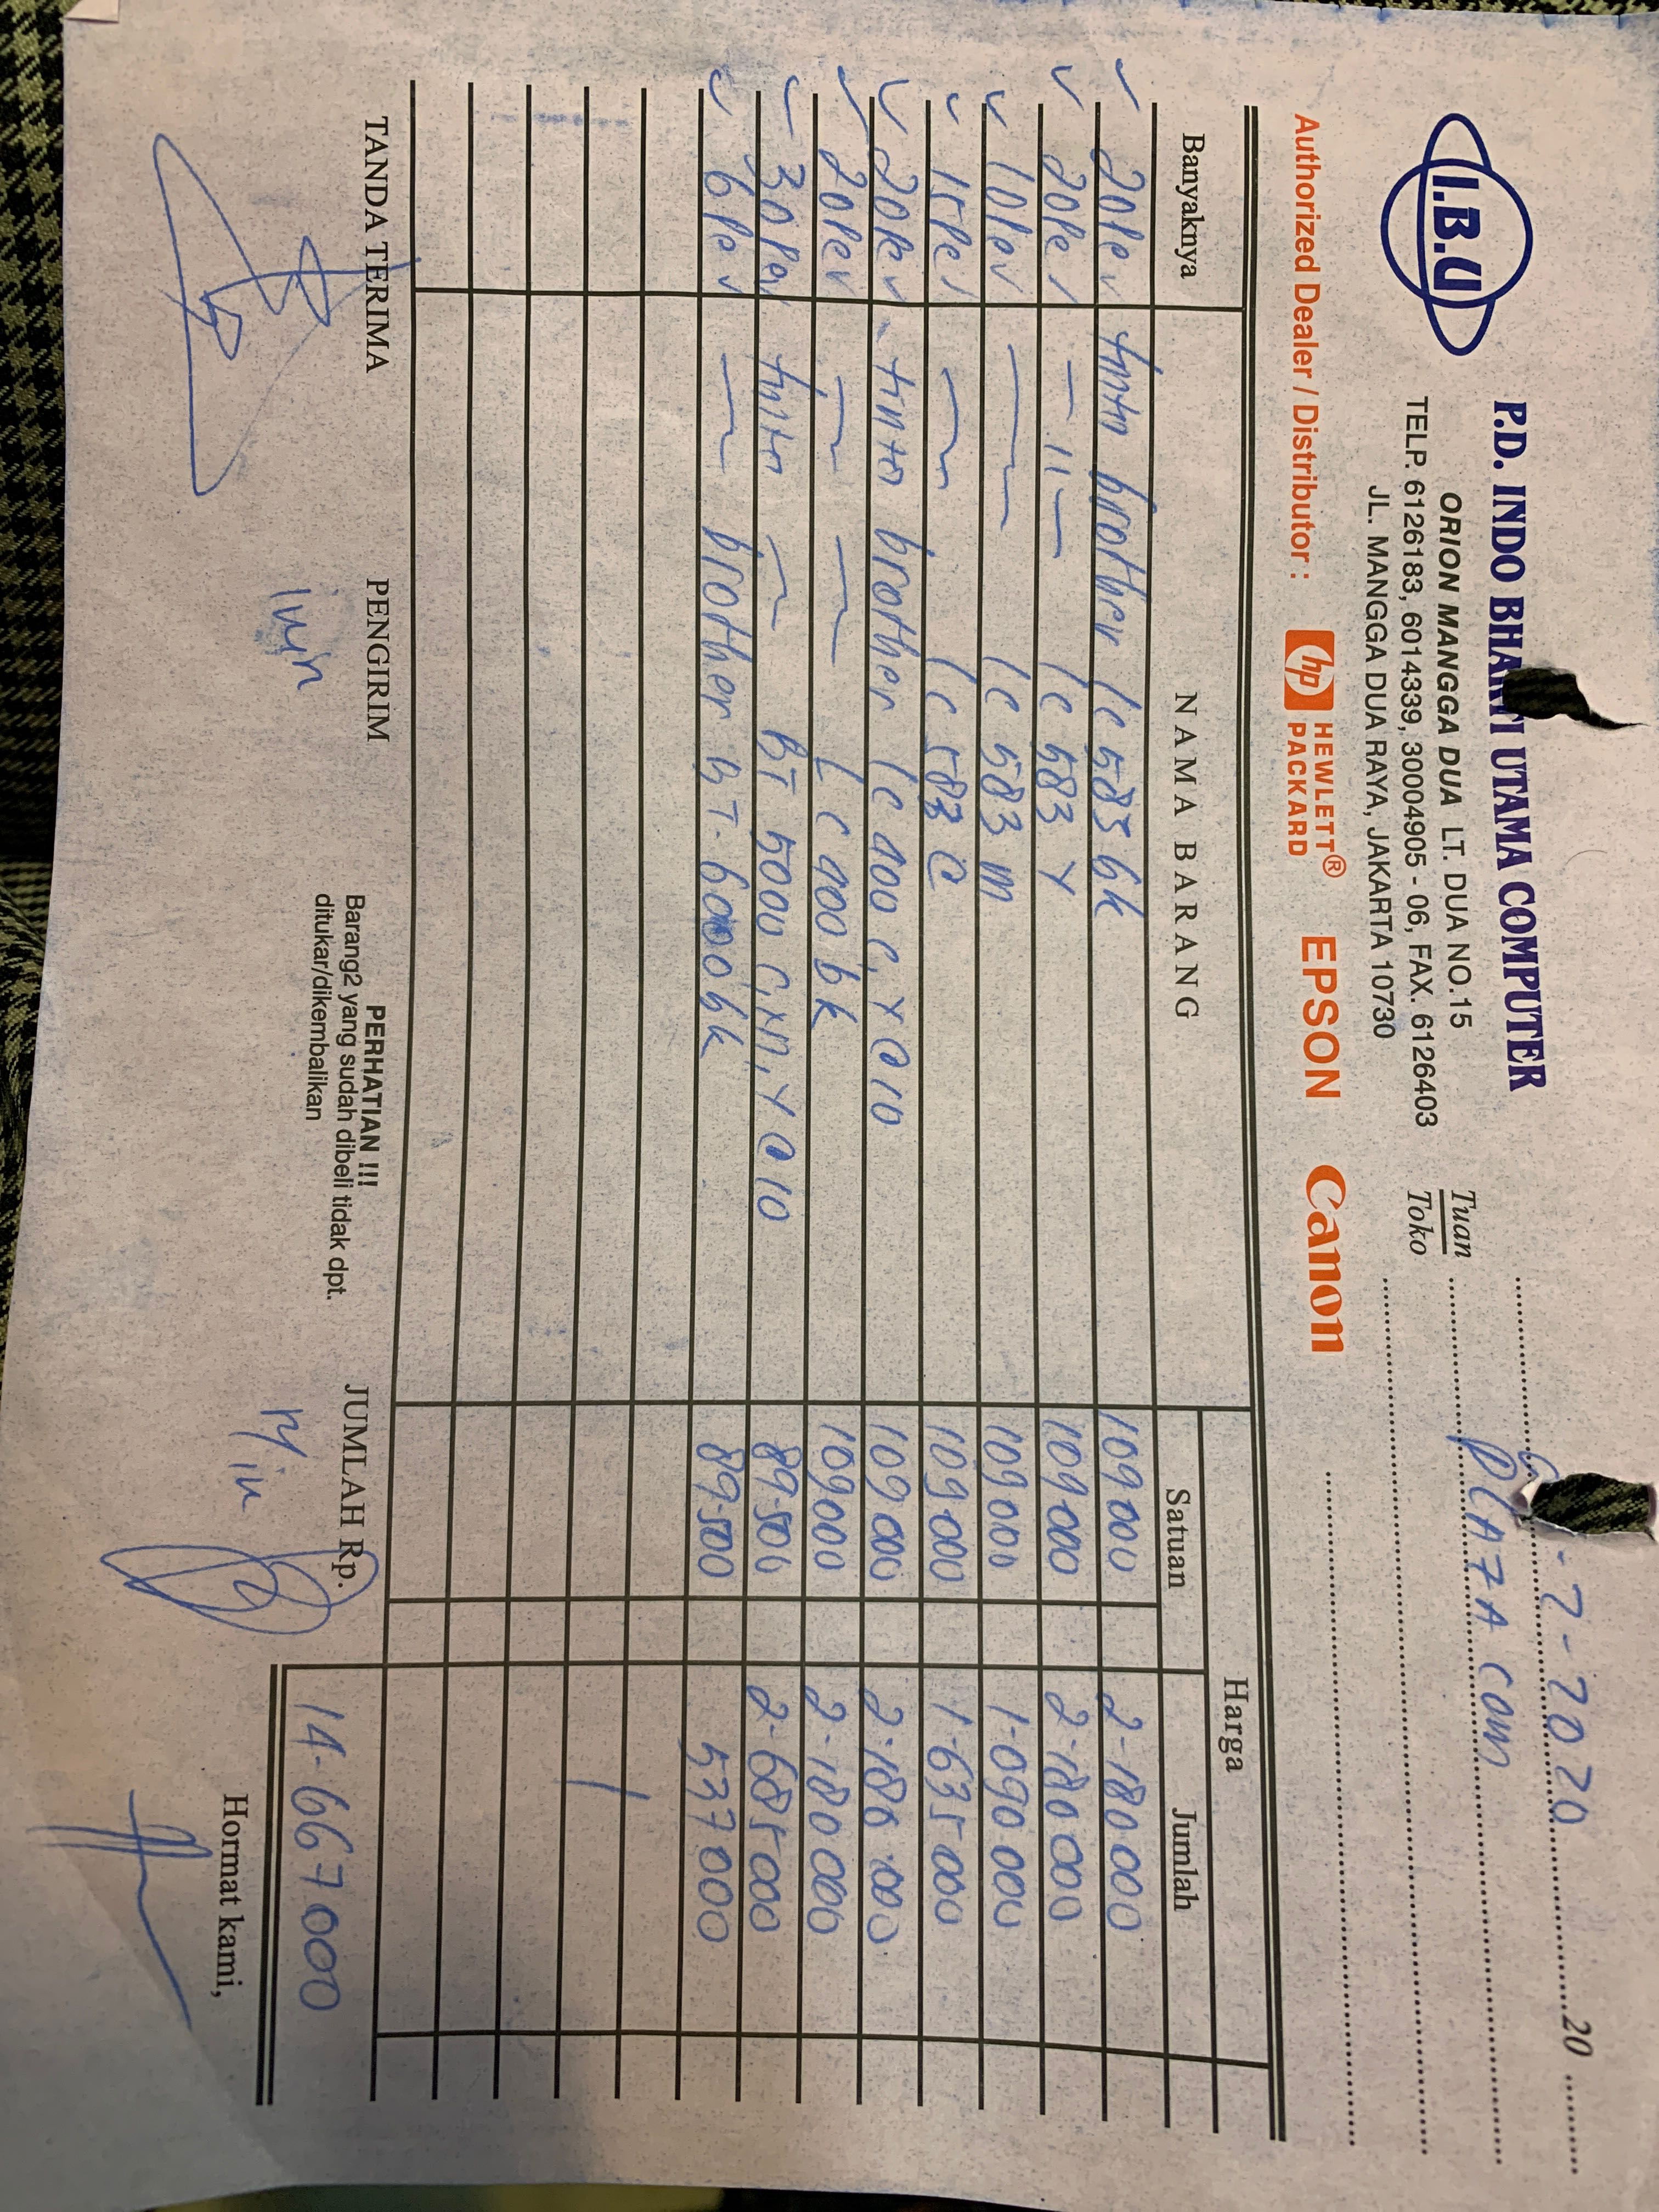 I.B.U
P.D. INDO BHAKTI UTAMA COMPUTER
ORION MANGGA DUA LT. DUA NO.15
TELP. 6126183, 6014339, 30004905 - 06, FAX. 6126403
JL. MANGGA DUA RAYA, JAKARTA 10730
-7-2020 20
Tuan
Toko
PLAZA com
Authorized Dealer / Distributor : hp HEWLETT® PACKARD EPSON Canon
Banyaknya NAMA BARANG Harga
Satuan Jumlah
20 pcs tinta brother lc 583 bk 109000 2-180000
20 pcs — 11 — lc 583 Y 109000 2-180000
10 pcs lc 583 m 109000 1-090000
15 pcs lc 583 C 109000 1-635000
20 pcs tinta brother lc 400 c, Y @ 10 109000 2-180.000
20 pcs Lc 400 bk 109000 2-180000
30 pcs tinta BT 5000 C, M, Y @ 10 89500 2-685000
6 pcs brother BT-6000bk 89500 537000
TANDA TERIMA PENGIRIM JUMLAH Rp. 14-667000
PERHATIAN !!!
Barang2 yang sudah dibeli tidak dpt.
ditukar/dikembalikan
Hormat kami,